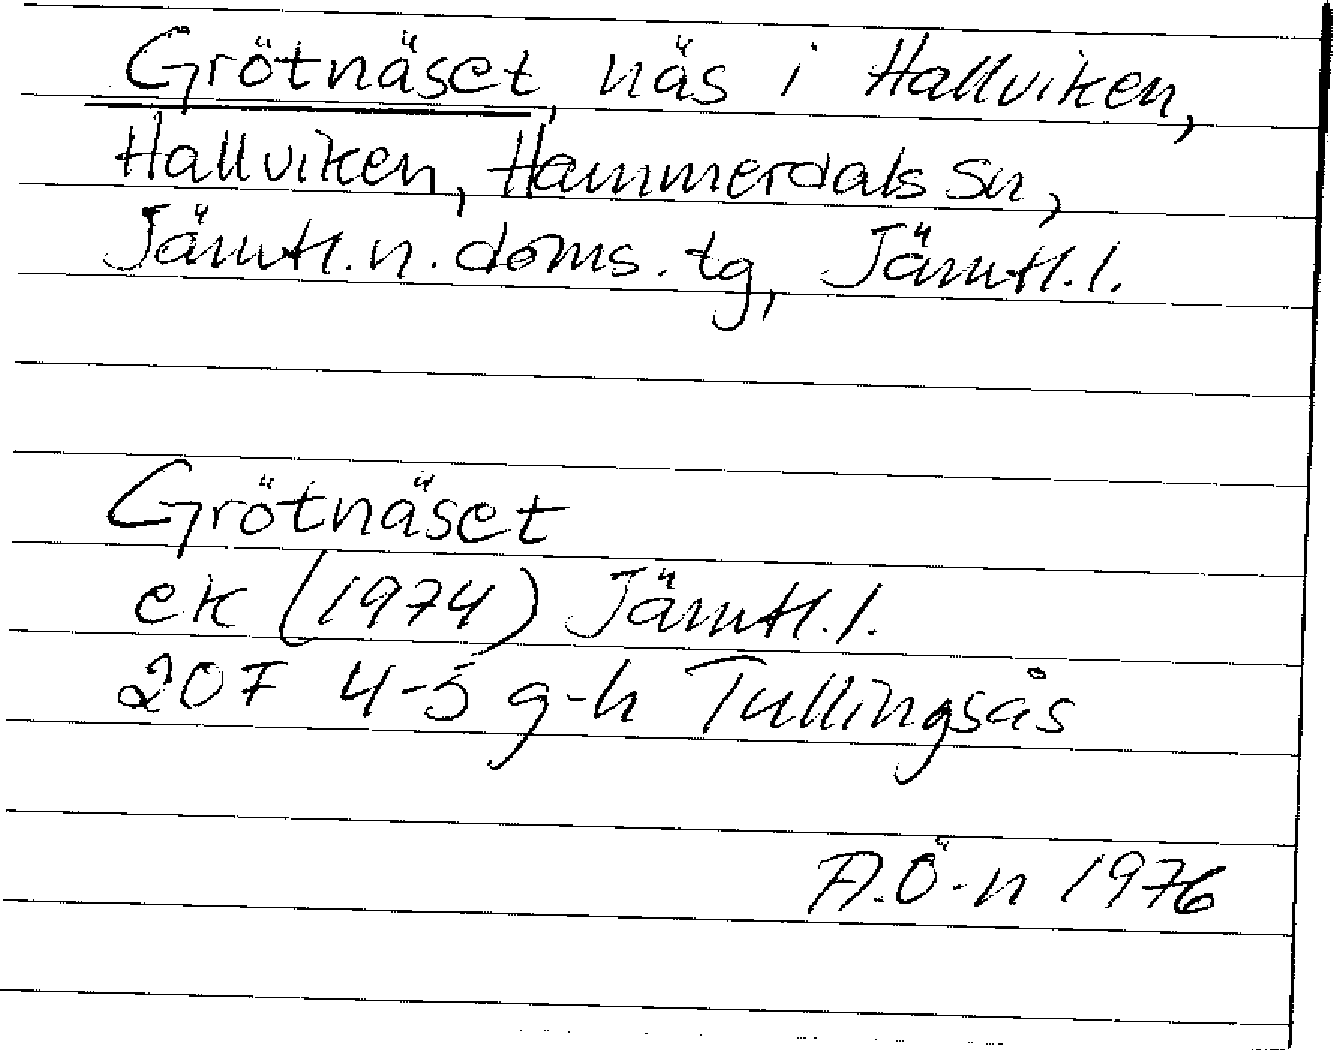 Grötnäset, näs i Hallviken,
Hallviken, Hammerdals sn,
Jämtl.n.doms.tg, Jämtl.l.
Grötnäset
ek (1974) Jämtl.l.
20F 4-5 g-h Tullingsås
A.Ö-n 1976